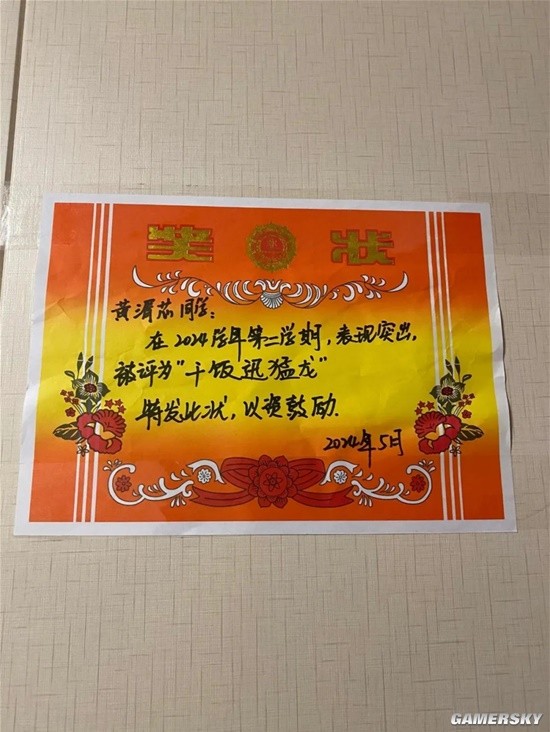 奖 状
黄湑芯同学:
在2024学年第二学期,表现突出,
被评为"干饭迅猛龙"
特发此状,以资鼓励.
2024年5月
GAMERSKY